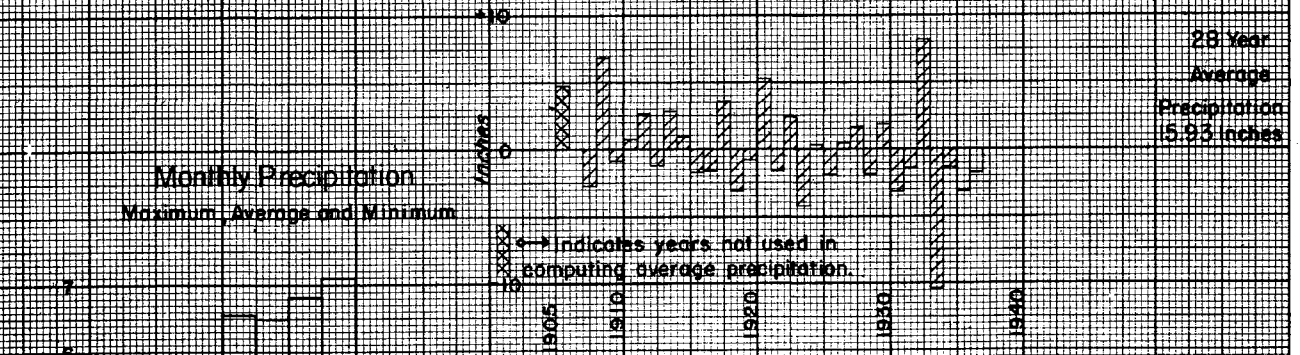 +10
28 Year
Average
Precipitation
15.93 Inches
Inches
0
Monthly Precipitation
Maximum, Average and Minimum
Indicates years not used in
computing average precipitation.
-10
7
1905
1910
1920
1930
1940